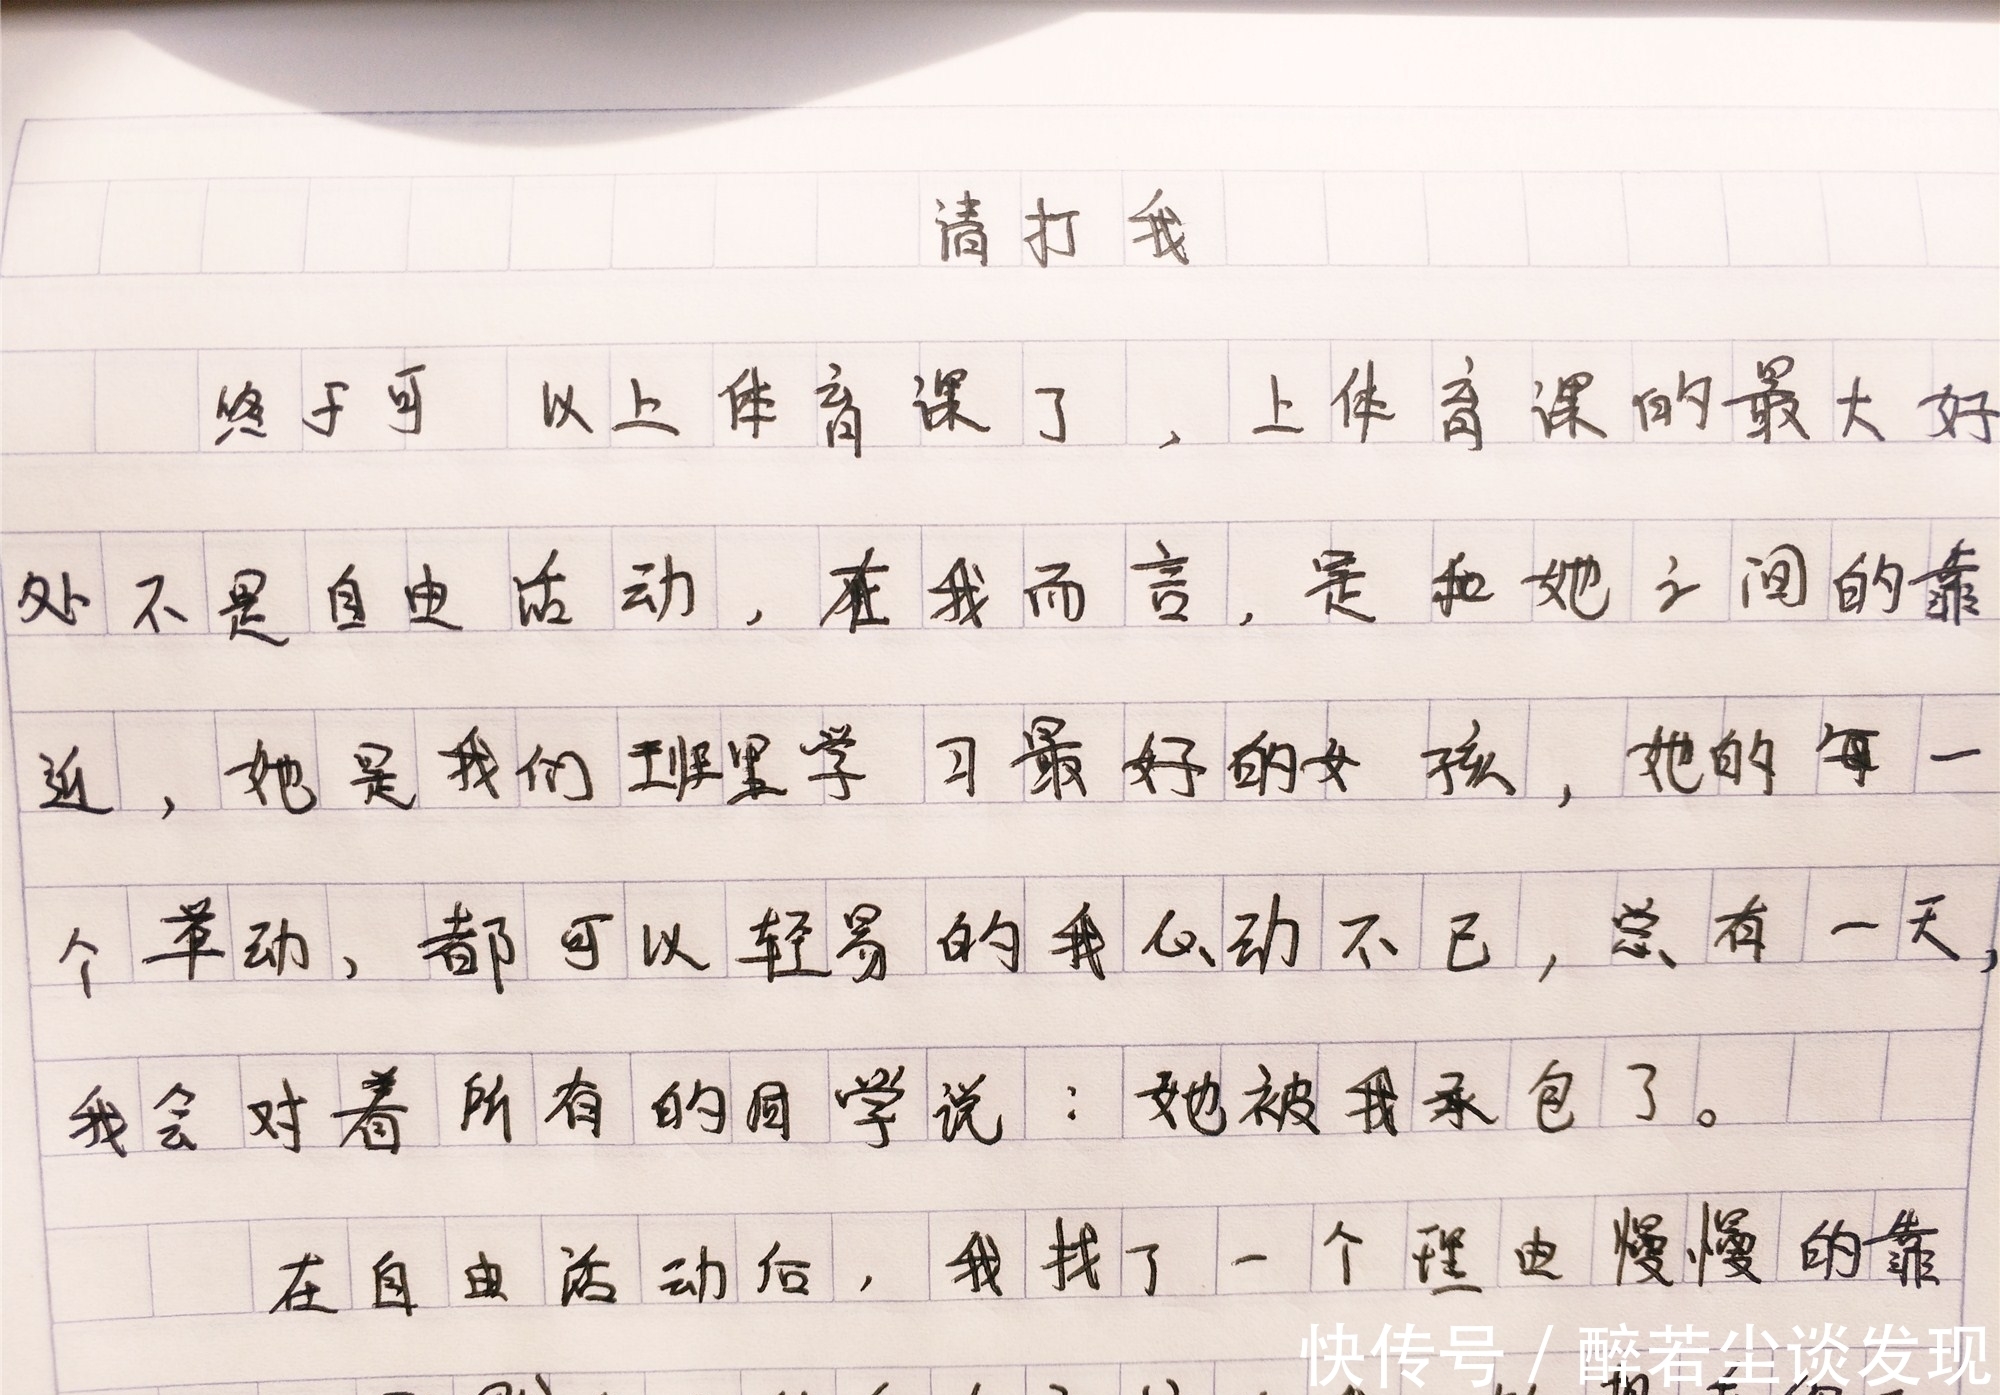 请打我
终于可以上体育课了，上体育课的最大好
处不是自由活动，在我而言，是和她之间的靠
近，她是我们班里学习最好的女孩，她的每一
个举动，都可以轻易的我心动不已，总有一天，
我会对着所有的同学说：她被我承包了。
在自由活动后，我找了一个理由慢慢的靠
快传号／醉若尘谈发现